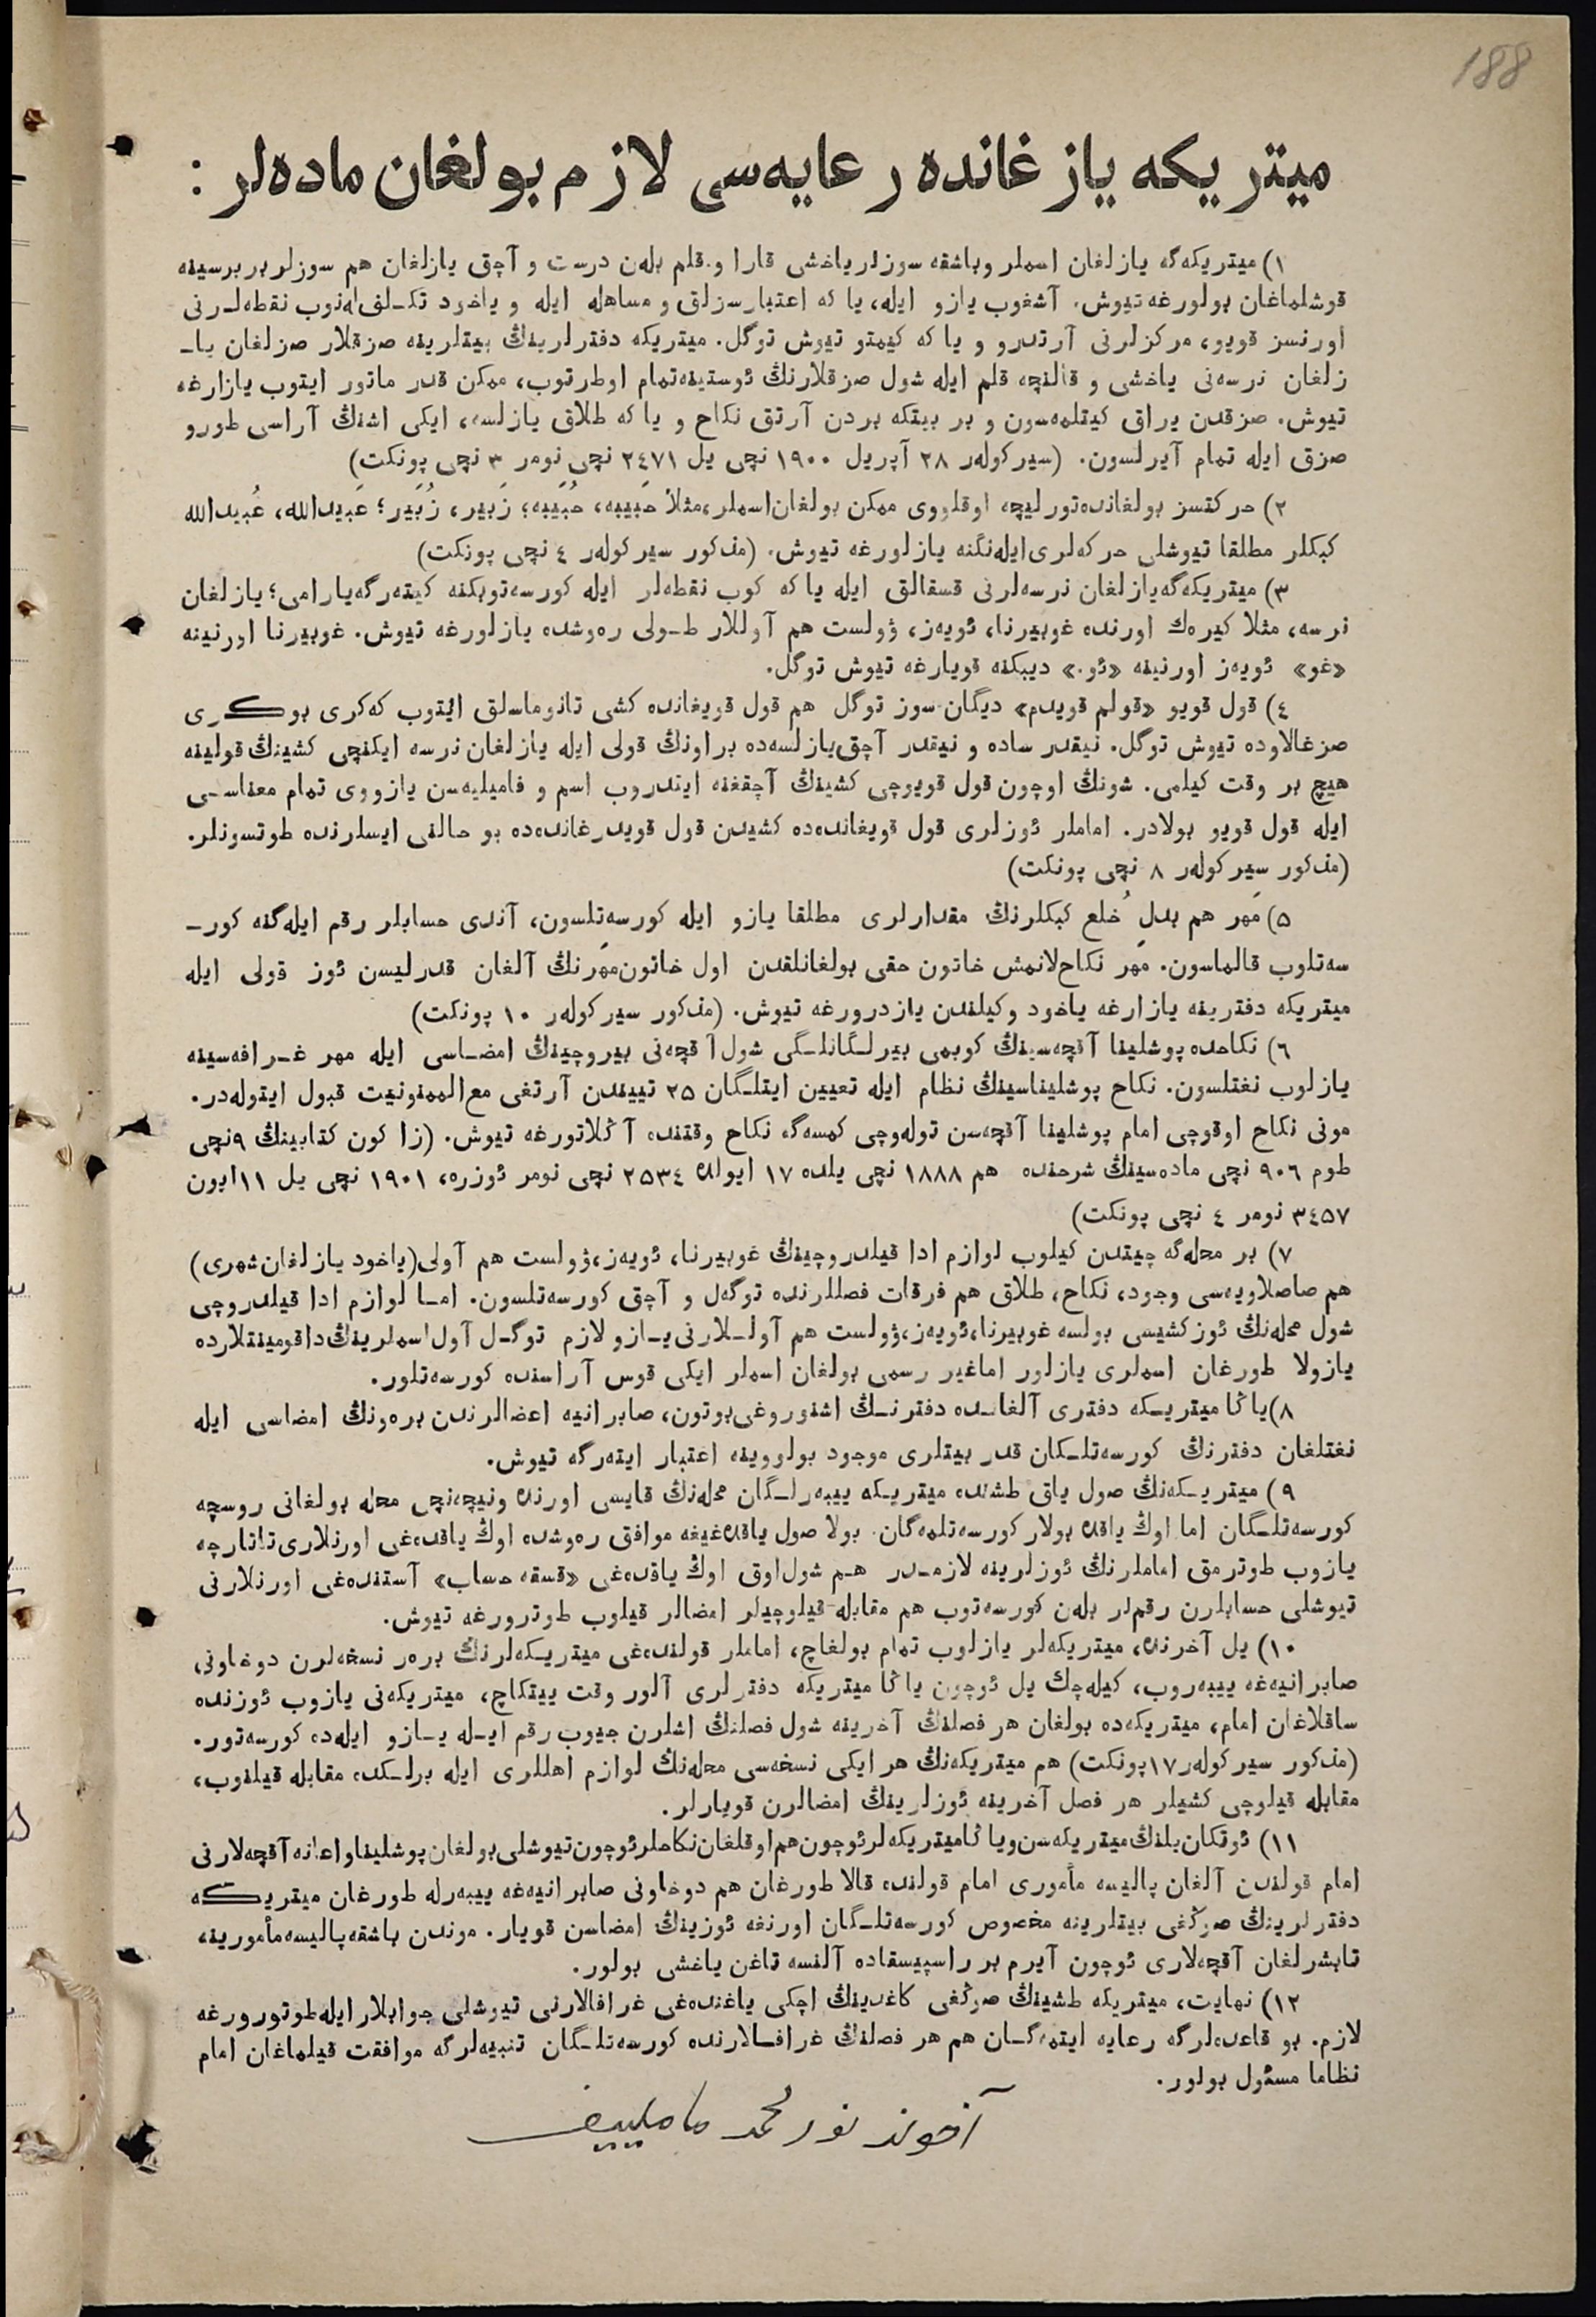 188
میتریکه یازغانده رعایه‌سی لازم بولغان ماده‌لر :
۱) میتریکه‌گه یازلغان اسملر وباشقه سوزلر یاخشی قارا و قلم بله‌ن درست و آچق یازلغان هم سوزلر بربرسینه
قوشلماغان بولورغه تیوش. آشغوب یازو ایله، یا که اعتبارسزلق و مساهله ایله و یاخود تکـلف له‌نوب نقطه‌لـرنی
اورنسز قویو، مرکزلرنی آرتدرو و یا که کیمتو تیوش توگل. میتریکه دفترلرینڭ بیتلرینه صزقلار صزلغان یاـ
زلغان نرسه‌نی یاخشی و قالنچه قلم ایله شول صزقلارنڭ ئوستینه‌تمام اوطرتوب، ممکن قدر ماتور ایتوب یازارغه
تیوش. صزقدن یراق کیتلمه‌سون و بر بیتکه بردن آرتق نکاح و یا که طلاق یازلسه، ایکی اشنڭ آراسی طورو
صزق ایله تمام آیرلسون. (سیرکوله‌ر ۲۸ آپریل ۱۹۰۰ نچی یل ۲٤۷۱ نچی نومر ۳ نچی پونکت)
۲) حرکتسز بولغانده‌تورلیچه اوقلووی ممکن بولغان‌اسملر،مثلا حَبیبه، حُبَیبه؛ زَبیر، زُبَیر؛ عَبیدالله، عُبیدالله
کبکلر مطلقا تیوشلی حرکه‌لری‌ایله‌نگنه یازلورغه تیوش. (مذکور سیرکوله‌ر ٤ نچی پونکت)
۳) میتریکه‌گه‌یازلغان نرسه‌لرنی قسقالق ایله یا که کوب نقطه‌لر ایله کورسه‌توبکنه کیته‌رگه‌یارامی؛ یازلغان
نرسه، مثلا کیره‌ك اورنده غوبیرنا، ئویه‌ز، ؤولست هم آوللار طـولی ره‌وشده یازلورغه تیوش. غوبیرنا اورنینه
«غو» ئویه‌ز اورنینه «ئو.» دیبکنه قویارغه تیوش توگل.
٤) قول قویو «قولم قویدم» دیگان سوز توگل هم قول قویغانده کشی تانوماسلق ایتوب که‌کری بوکـری
صزغالاوده تیوش توگل. نیقدر ساده و نیقدر آچق‌یازلسه‌ده براونڭ قولی ایله یازلغان نرسه ایکنچی کشینڭ قولینه
هیچ بر وقت کیلمی. شونڭ اوچون قول قویوچی کشینڭ آچقغنه ایتدروب اسم و فامیلیه‌سن یازووی تمام معناسـی
ایله قول قویو بولادر. اماملر ئوزلری قول قویغانده‌ده کشیدن قول قویدرغانده‌ده بو حالنی ایسلرنده طوتسونلر.
(مذکور سیرکوله‌ر ۸ نچی پونکت)
۵) مَهر هم بدلِ خُلع کبکلرنڭ مقدارلری مطلقا یازو ایله کورسه‌تلسون، آندی حسابلر رقم ایله‌گنه کورـ
سه‌تلوب قالماسون. مَهر نکاح‌لانمش خاتون حقی بولغانلقدن اول خاتون‌مهرنڭ آلغان قدرلیسن ئوز قولی ایله
میتریکه دفترینه یازارغه یاخود وکیلندن یازدرورغه تیوش. (مذکور سیرکوله‌ر ۱۰ پونکت)
٦) نکاحده پوشلینا آقچه‌سینڭ کوبمی بیرلـگانلـگی شول آقچه‌نی بیروچینڭ امضـاسی ایله مهر غـرافه‌سینه
یازلوب نغتلسون. نکاح پوشلیناسینڭ نظام ایله تعیین ایتلـگان ۲۵ تییندن آرتغی مع‌الممنونیت قبول ایتوله‌در.
مونی نکاح اوقوچی امام پوشلینا آقچه‌سن توله‌وچی کمسه‌گه نکاح وقتنده آڭلاتورغه تیوش. (زاکون کتابینڭ ۹نچی
طوم ۹۰٦ نچی ماده‌سینڭ شرحنده هم ۱۸۸۸ نچی یلده ۱۷ ایولده ۲۵۳٤ نچی نومر ئوزره، ۱۹۰۱ نچی یل ۱۱ایون
۳٤۵۷ نومر ٤ نچی پونکت)
۷) بر محله‌گه چیتدن کیلوب لوازم ادا قیلدروچینڭ غوبیرنا، ئویه‌ز،ؤولست هم آولی(یاخود یازلغان‌شهری)
هم صاصلاویه‌سی وجود، نکاح، طلاق هم فرقات فصللرنده توگه‌ل و آچق کورسه‌تلسون. امـا لوازم ادا قیلدروچی
شول محله‌نڭ ئوزکشیسی بولسه غوبیرنا،ئویه‌ز،ؤولست هم آولـلارنی‌یـازو لازم توگـل آول‌اسملرینڭ‌داقومینتلارده
یازولا طورغان اسملری یازلور اماغیر رسمی بولغان اسملر ایکی قوس آراسنده کورسه‌تلور.
۸)یاڭا میتریـکه دفتری آلغانـده دفترنـڭ اشنوروغی‌بوتون، صابرانیه اعضالرندن بره‌ونڭ امضاسی ایله
نغتلغان دفترنڭ کورسه‌تلـکان قدر بیتلری موجود بولووینه اعتبار ایته‌رگه تیوش.
۹) میتریـکه‌نڭ صول یاق طشنده میتریـکه ییبه‌رلـگان محله‌نڭ قایسی اورنده ونیچه‌نچی محله بولغانی روسچه
کورسه‌تلـگان اما اوڭ یاقده بولار کورسه‌تلمه‌گان. بولا صول یاقده‌غیغه موافق ره‌وشده اوڭ یاقده‌غی اورنلاری‌تاتارچه
یازوب طوترمق اماملرنڭ ئوزلرینه لازمـدر هـم شول‌اوق اوڭ یاقده‌غی «قسقه حساب» آستنده‌غی اورنلارنی
تیوشلی حسابلرن رقم‌لر بله‌ن کورسه‌توب هم مقابله قیلوچیلر امضالر قیلوب طوترورغه تیوش.
۱۰) یل آخرنده، میتریکه‌لر یازلوب تمام بولغاچ، اماملر قولنده‌غی میتریـکه‌لرنڭ بره‌ر نسخه‌لرن دوخاونی
صابرانیه‌غه ییبه‌روب، کیله‌چك یل ئوچون یاڭا میتریکه دفترلری آلور وقت ییتکاچ، میتریکه‌نی یازوب ئوزنده
ساقلاغان امام، میتریکه‌ده بولغان هر فصلنڭ آخرینه شول فصلنڭ اشلرن جیوب رقم ایـله یـازو ایله‌ده کورسه‌تور.
(مذکور سیرکوله‌ر۱۷پونکت) هم میتریکه‌نڭ هر ایکی نسخه‌سی محله‌نڭ لوازم اهللری ایله برلـکده مقابله قیلنوب،
مقابله قیلوچی کشیلر هر فصل آخرینه ئوزلرینڭ امضالرن قویارلر.
۱۱) ئوتکان‌یلنڭ‌میتریکه‌سن‌ویاڭامیتریکه‌لرئوچون‌هم‌اوقلغان‌نکاحلرئوچون‌تیوشلی‌بولغان‌پوشلیناواعانه‌آقچه‌لارنی
امام قولندن آلغان پالیسه مأموری امام قولنده قالا طورغان هم دوخاونی صابرانیه‌غه ییبه‌رله طورغان میتریـکه
دفترلرینڭ صوڭغی بیتلرینه مخصوص کورسه‌تلـگان اورنغه ئوزینڭ امضاسن قویار. موندن باشقه‌پالیسه‌مأمورینه
تابشرلغان آقچه‌لاری ئوچون آیرم بر راسپیسقاده آلنسه تاغن یاخشی بولور.
۱۲) نهایت، میتریکه طشینڭ صوڭغی کاغدینڭ اچکی یاغنده‌غی غرافالارنی تیوشلی جوابلار ایله‌طوتورورغه
لازم. بو قاعده‌لرگه رعایه ایتمه‌گـان هم هر فصلنڭ غرافـالارنده کورسه‌تلـگان تنبیه‌لرگه موافقت قیلماغان امام
نظاما مسئول بولور.
آخوند نورمحمد ماملییف